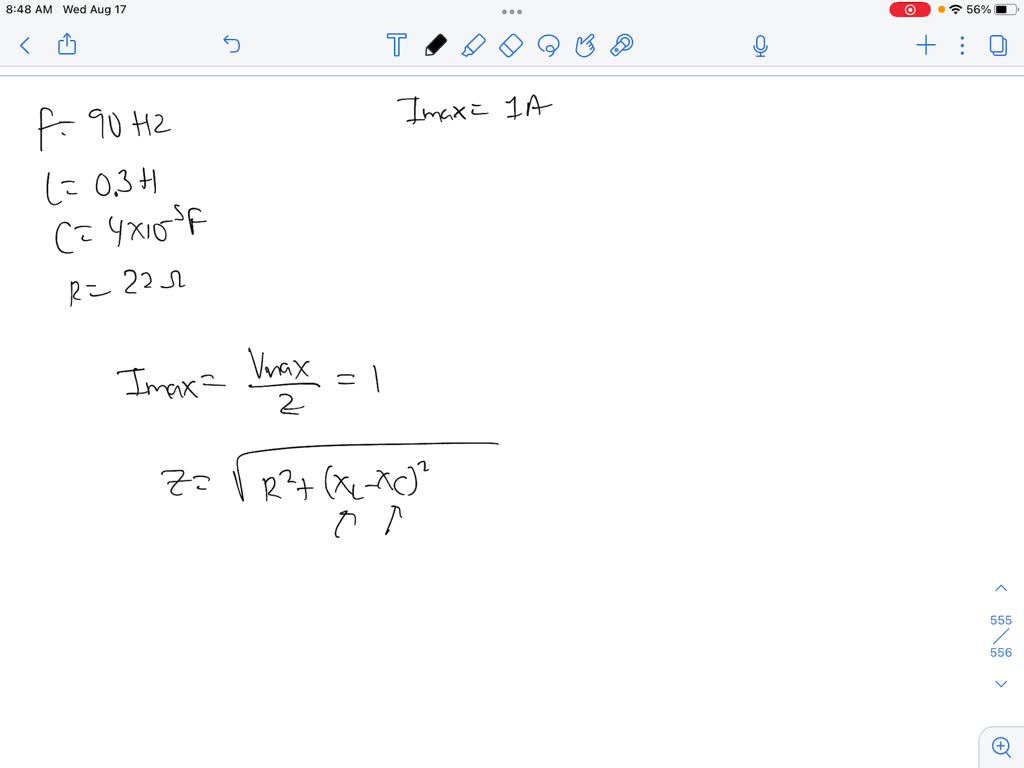 8:48 AM Wed Aug 17
56%
f = 90 Hz
Imax = 1A
L = 0.3 H
C = 4×10⁻⁵F
R = 22 Ω
Imax = Vmax/Z = 1
Z = √R²+(XL-XC)²
555
556